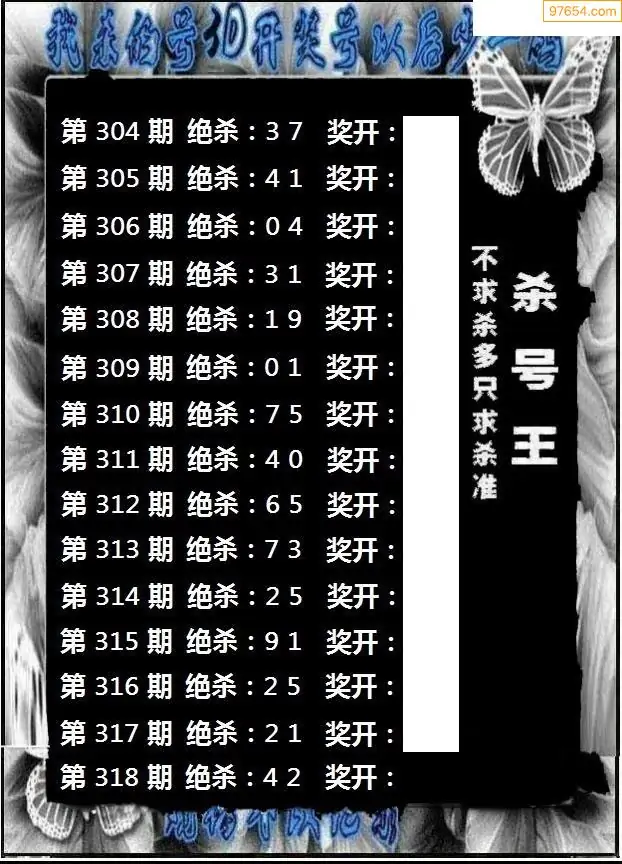 97654.com
我来的号3D开奖号以后少一码
第 304 期 绝杀：3 7 奖开：
第 305 期 绝杀：4 1 奖开：
第 306 期 绝杀：0 4 奖开：
第 307 期 绝杀：3 1 奖开：
第 308 期 绝杀：1 9 奖开：
第 309 期 绝杀：0 1 奖开：
第 310 期 绝杀：7 5 奖开：
第 311 期 绝杀：4 0 奖开：
第 312 期 绝杀：6 5 奖开：
第 313 期 绝杀：7 3 奖开：
第 314 期 绝杀：2 5 奖开：
第 315 期 绝杀：9 1 奖开：
第 316 期 绝杀：2 5 奖开：
第 317 期 绝杀：2 1 奖开：
第 318 期 绝杀：4 2 奖开：
杀号王
不求杀多只求杀准